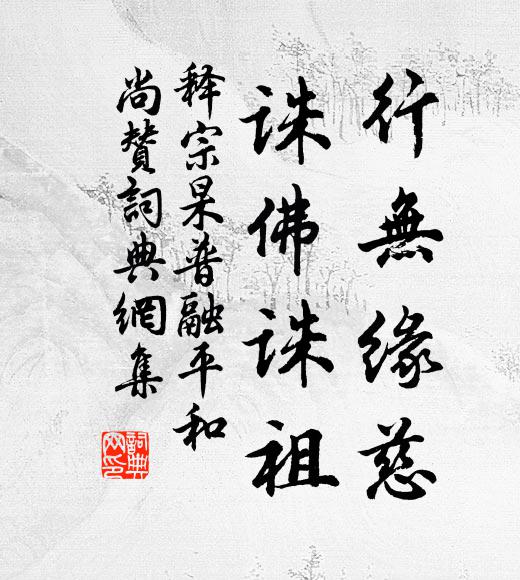 行無緣慈
誅佛誅祖
释宗杲普融平和
尚贊詞典網集
詞典網印